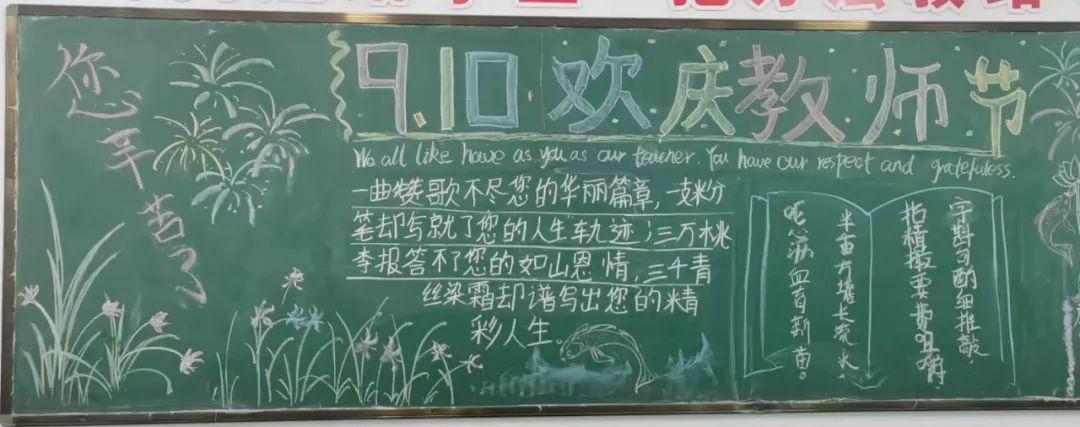 您辛苦了
9.10欢庆教师节
We all like howe as you as our teacher. You have our respect and gratefuless.
一曲赞歌不尽您的华丽篇章，一支粉
笔却写就了您的人生轨迹；三万桃
李报答不了您的如山恩情，三千青
丝染霜却谱写出您的精
彩人生。
字斟句酌细推敲
拈精撮要费咀嚼
半亩方塘长流水
呕心沥血育新苗。